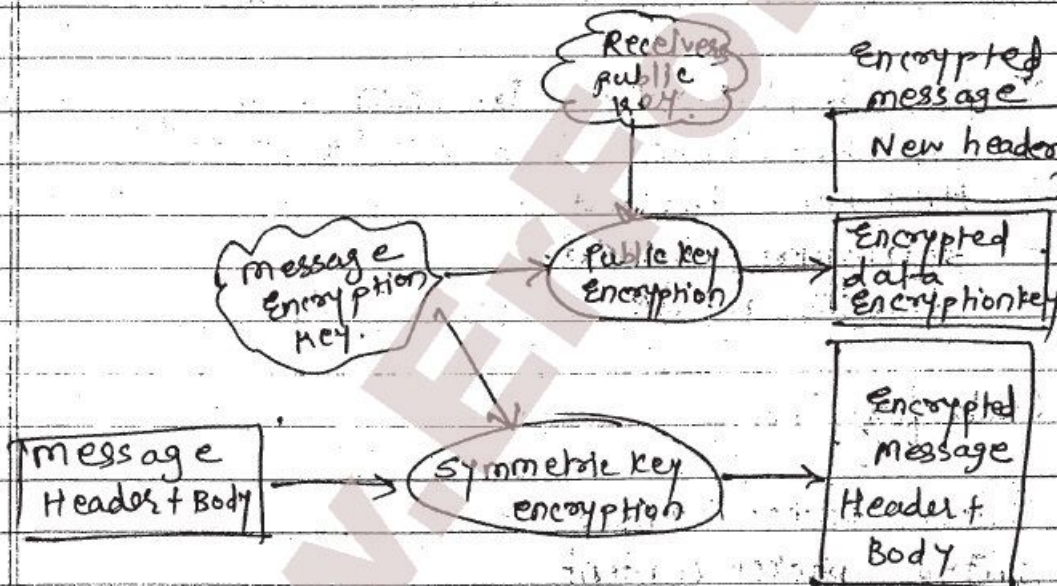 Receivers
public
key.
Encrypted
message
New header
Message
Encryption
key.
Public key
Encryption
Encrypted
data
Encryptionkey
Message
Header + Body
Symmetric key
encryption
Encrypted
Message
Header +
Body